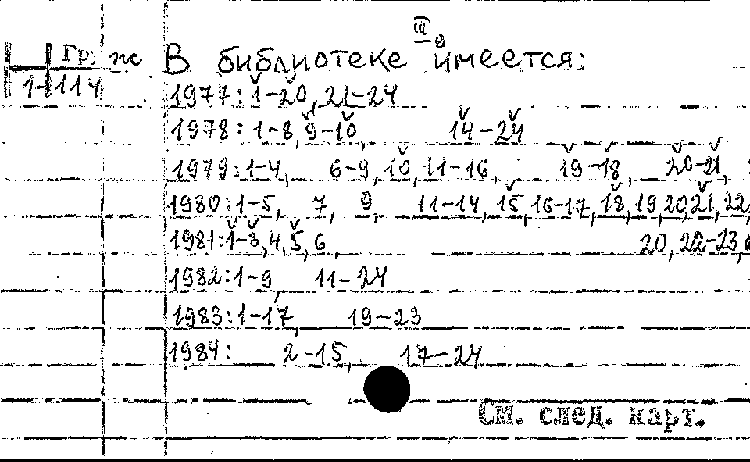 III
Гр. ж В библиотеке имеется:
1-114
1977: 1-20, 21-24
1978: 1-8, 9-10, 14-24
1979: 1-4, 6-9, 10, 11-16, 20-21,
1980: 1-5, 7, 9, 11-14, 15, 16-17, 18, 19, 20, 21, 22,
1981: 1-3, 4, 5, 6, 20, 22-23,
1982: 1-9, 11-24
1983: 1-17, 19-23
1984: 2-15, 17-24
См. след. карт.